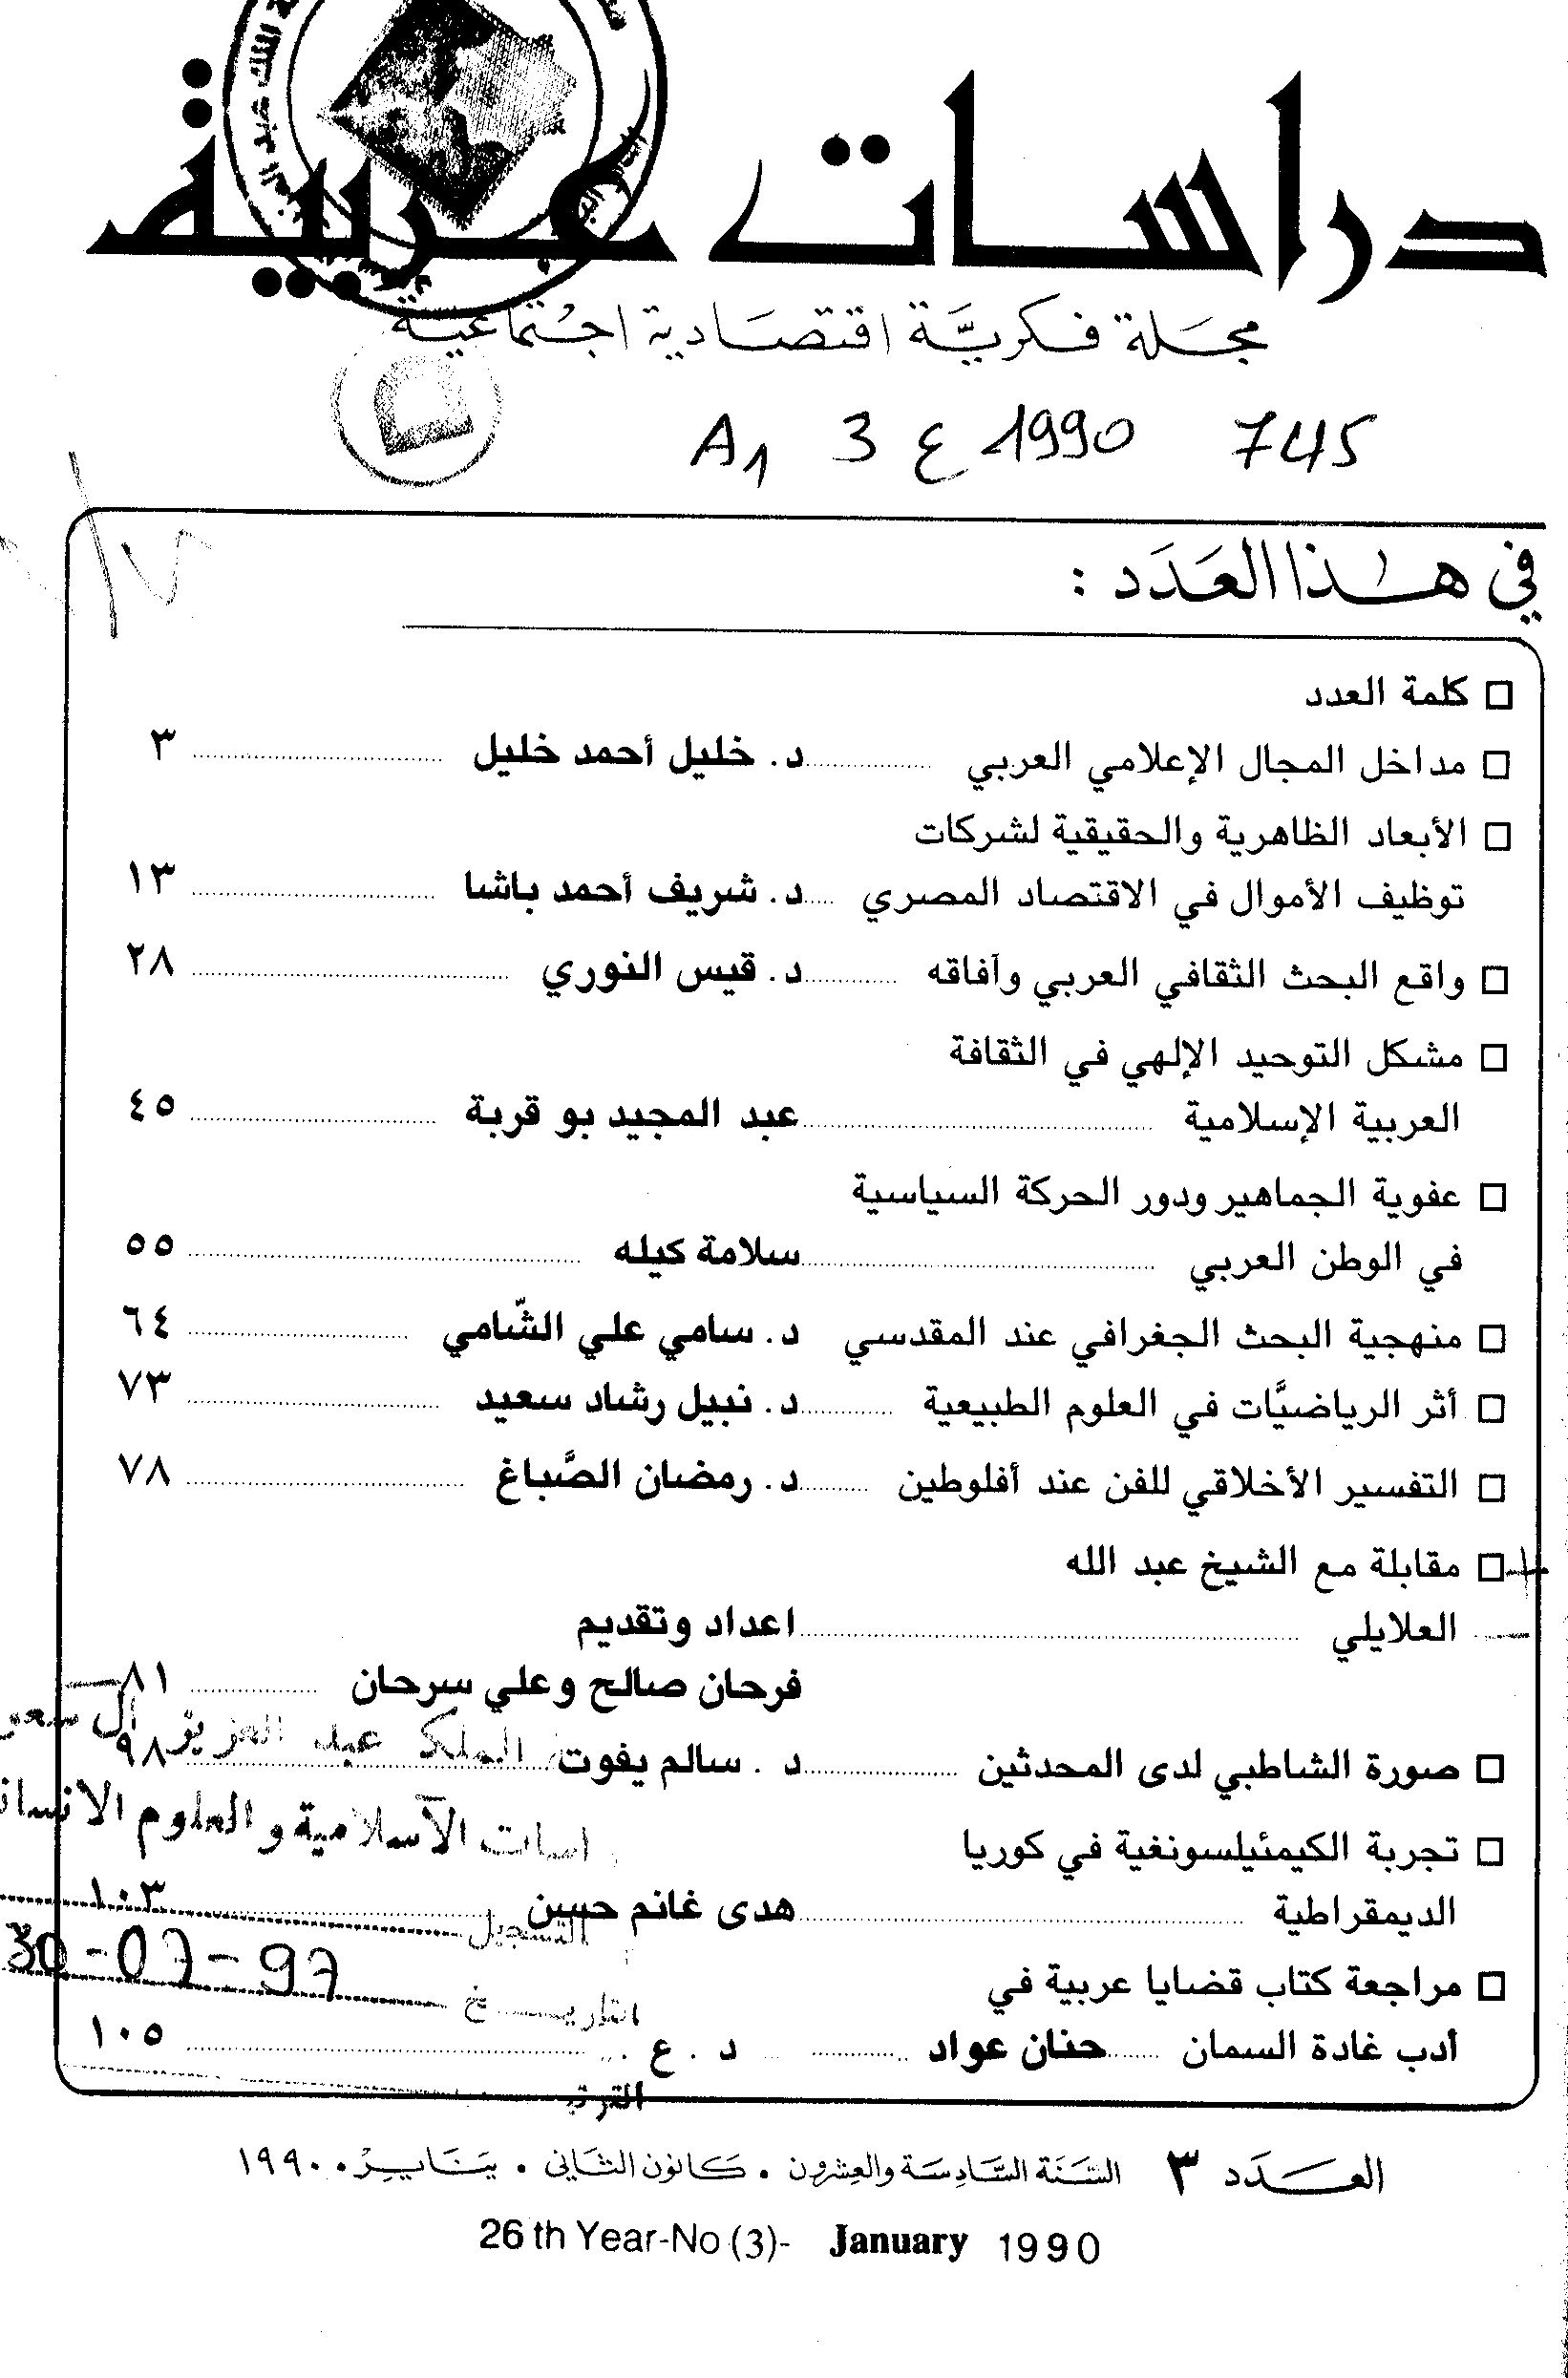 دراسات عربية
مجلة فكريَّة اقتصادية اجتماعية
A1 3 ع 1990 745
في هذا العدد :
□ كلمة العدد
□ مداخل المجال الإعلامي العربي ........ د. خليل أحمد خليل ........ ٣
□ الأبعاد الظاهرية والحقيقية لشركات
توظيف الأموال في الاقتصاد المصري ..... د. شريف أحمد باشا ........ ١٣
□ واقع البحث الثقافي العربي وآفاقه ........ د. قيس النوري ........ ٢٨
□ مشكل التوحيد الإلهي في الثقافة
العربية الإسلامية ........ عبد المجيد بو قربة ........ ٤٥
□ عفوية الجماهير ودور الحركة السياسية
في الوطن العربي ........ سلامة كيله ........ ٥٥
□ منهجية البحث الجغرافي عند المقدسي د. سامي علي الشّامي ........ ٦٤
□ أثر الرياضيَّات في العلوم الطبيعية ........ د. نبيل رشاد سعيد ........ ٧٣
□ التفسير الأخلاقي للفن عند أفلوطين ........ د. رمضان الصَّباغ ........ ٧٨
□ مقابلة مع الشيخ عبد الله
العلايلي ........ اعداد وتقديم
فرحان صالح وعلي سرحان ........ ٨١
الملك عبد العزيز آل سعو
□ صورة الشاطبي لدى المحدثين ........ د . سالم يفوت ........ ٩٨
اسات الآسلامية و العلوم الانسان
□ تجربة الكيمئيلسونغية في كوريا
الديمقراطية ........ هدى غانم حسين ........ ١٠٣
التسجيل
30-07-97
التاريخ
□ مراجعة كتاب قضايا عربية في
أدب غادة السمان ...... حنان عواد ........ د . ع . ........ ١٠٥
العدد ٣ السَّنَة السَّادِسَة والعِشرون • كانون الثاني • يَنَايِرْ • ١٩٩٠
26 th Year-No (3)- January 1990